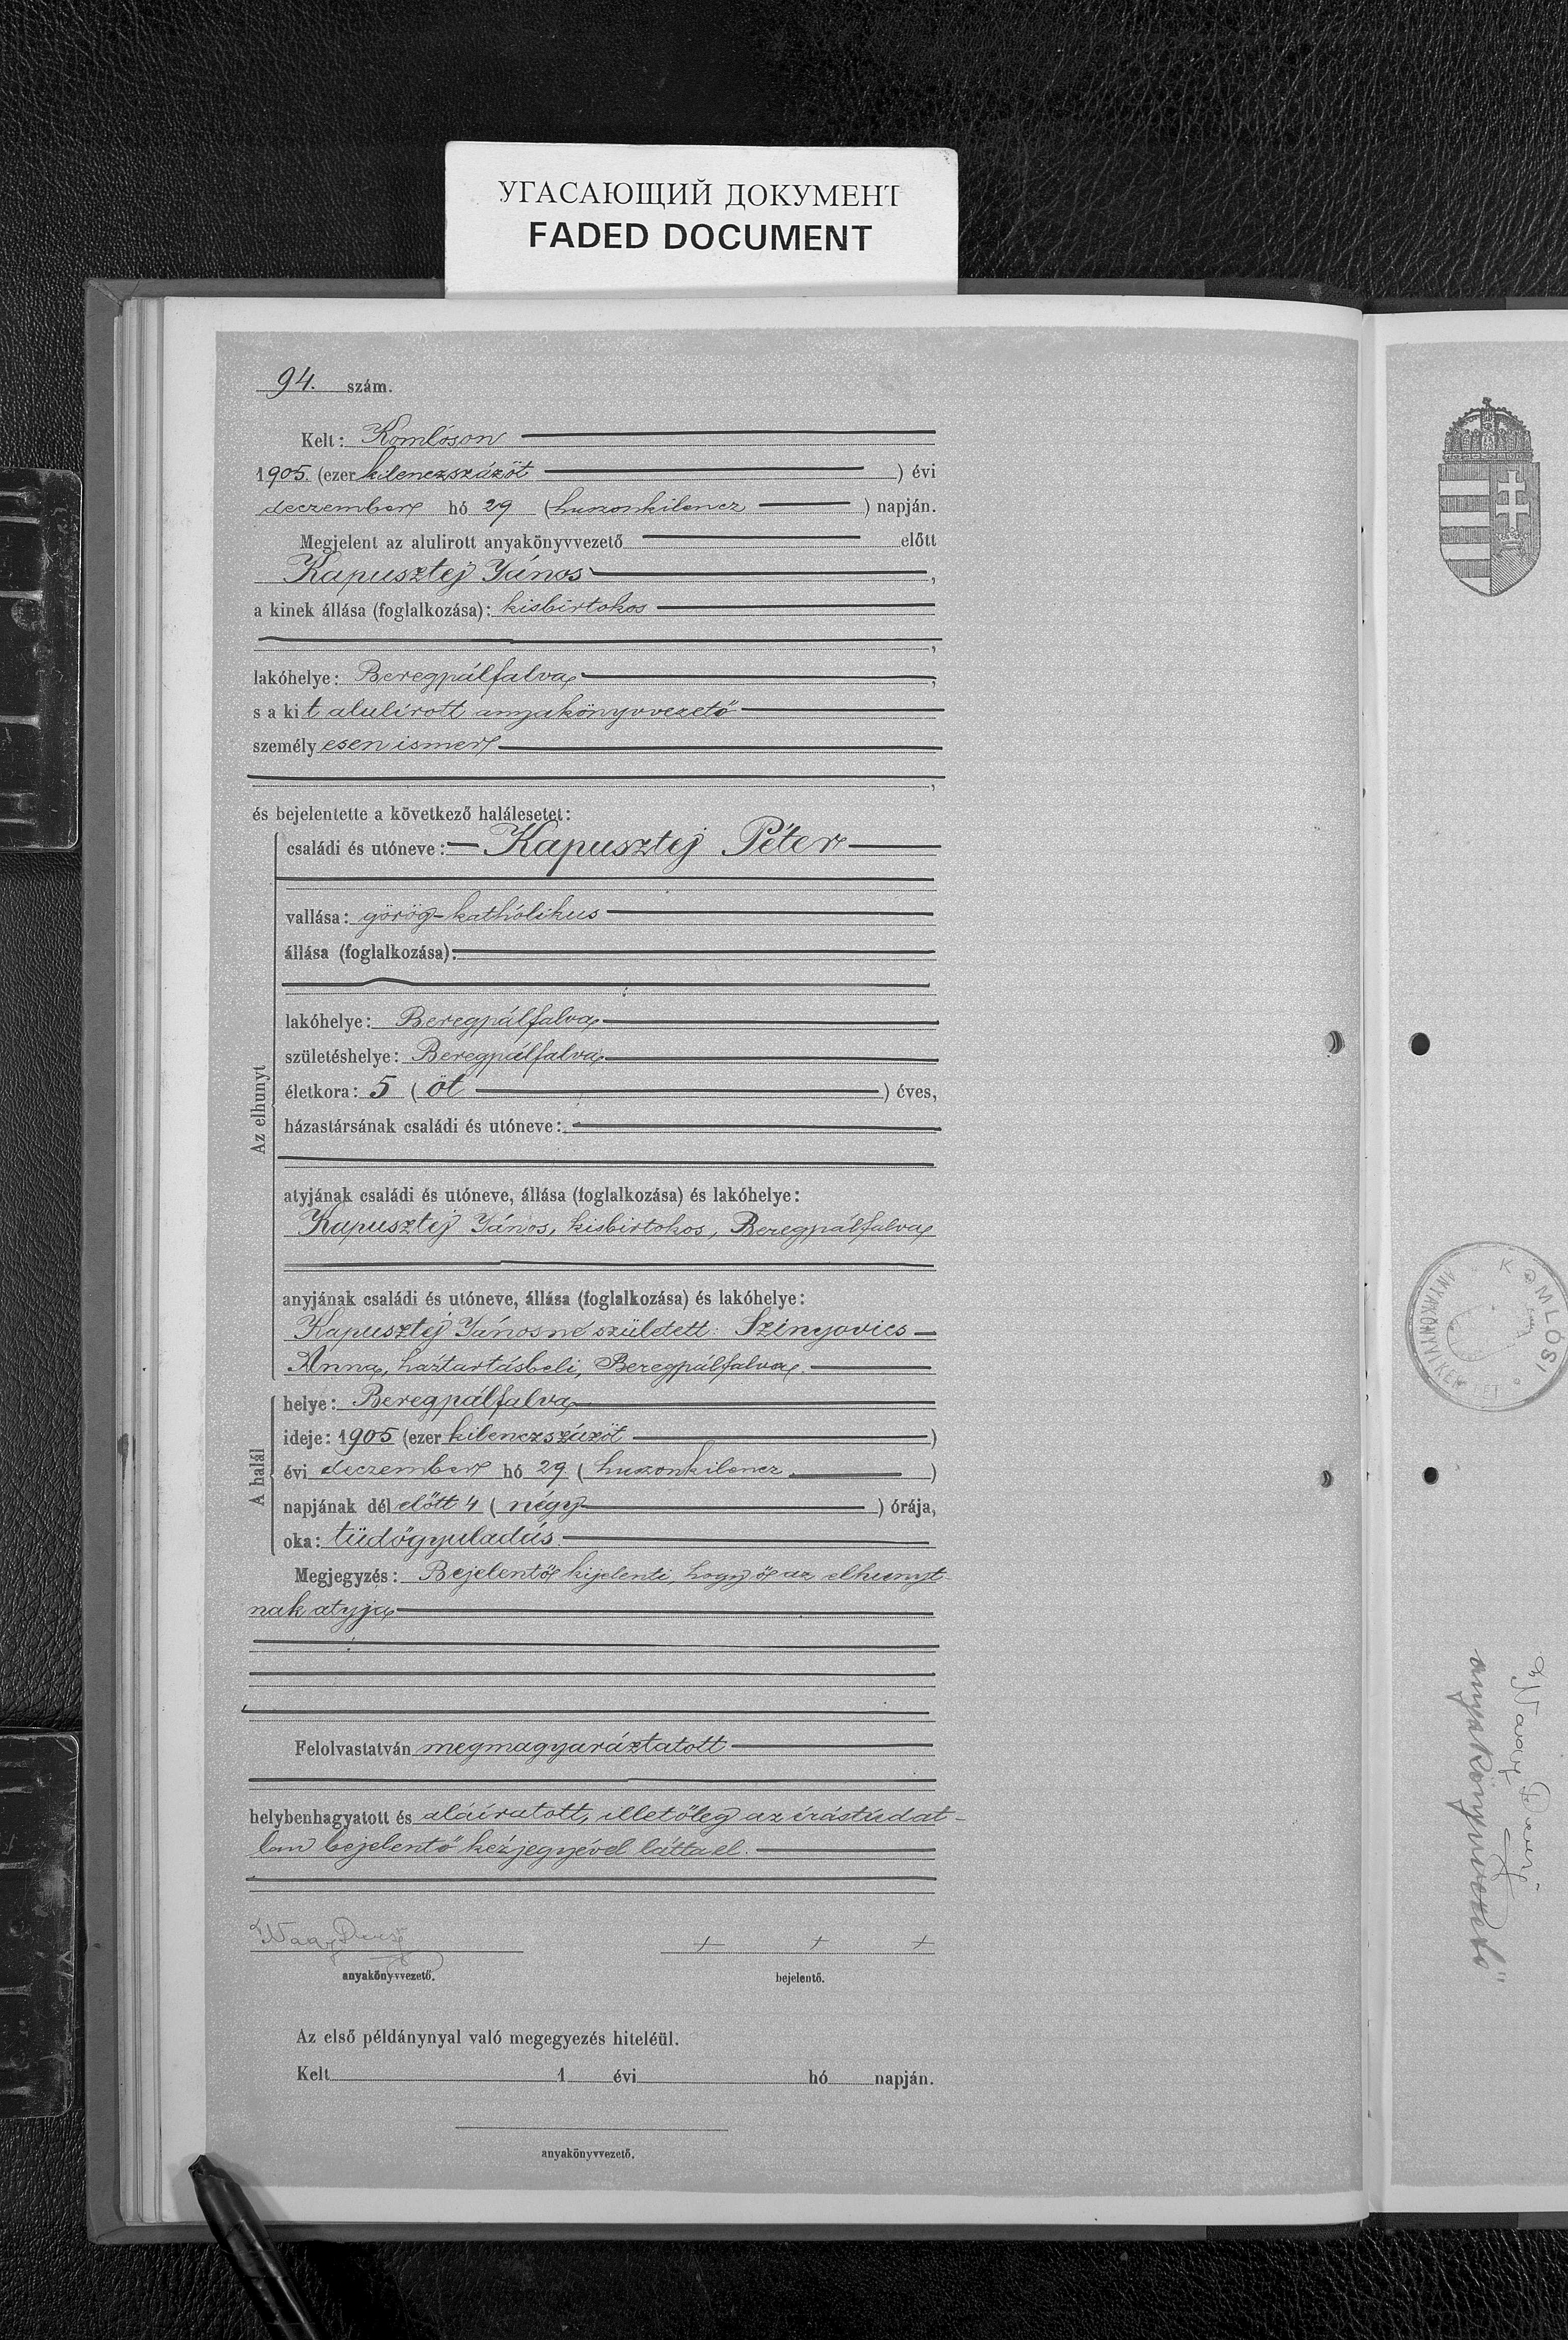 УГАСАЮЩИЙ ДОКУМЕНТ
FADED DOCUMENT
94. szám.
Kelt: Komlóson
1905. (ezer kilenczszázöt ) évi
deczember hó 29 (huszonkilencz ) napján.
Megjelent az alulirott anyakönyvvezető előtt
Kapusztej János,
a kinek állása (foglalkozása): kisbirtokos
,
lakóhelye: Beregpálfalva,
s a kit alulírott anyakönyvvezető
személyesen ismer
,
és bejelentette a következő halálesetet:
Az elhunyt
családi és utóneve: Kapusztej Péter
vallása: görög-kathólikus
állása (foglalkozása):
;
lakóhelye: Beregpálfalva
születéshelye: Beregpálfalva
életkora: 5 (öt ) éves,
házastársának családi és utóneve:
atyjának családi és utóneve, állása (foglalkozása) és lakóhelye:
Kapusztej János, kisbirtokos, Beregpálfalva
anyjának családi és utóneve, állása (foglalkozása) és lakóhelye:
Kapusztej Jánosné született Szinyovics
Anna, háztartásbeli, Beregpálfalva.
A halál
helye: Beregpálfalva
ideje: 1905 (ezer kilenczszázöt )
évi deczember hó 29 (huszonkilencz )
napjának dél előtt 4 (négy ) órája,
oka: tüdőgyuladás.
Megjegyzés: Bejelentő kijelenti, hogy ő az elhunyt-
nak atyja
Felolvastatván megmagyaráztatott
helybenhagyatott és aláíratott, illetőleg az írástudat-
lan bejelentő kézjegyével látta el.
Nagy + + +
anyakönyvvezető. bejelentő.
Az első példánynyal való megegyezés hiteléül.
Kelt 1 évi hó napján.
anyakönyvvezető.
KOMLÓSI
ANYAKÖNYVI KERÜLET
Nagy
anyakönyvvezető